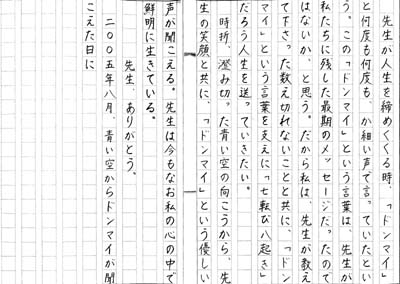 先生が人生を締めくくる時、「ドンマイ」
と何度も何度も、か細い声で言っていたとい
う。この「ドンマイ」という言葉は、先生が
私たちに残した最期のメッセージだったので
はないか、と思う。だから私は、先生が教え
て下さった数え切れないことと共に、「ドン
マイ」という言葉を支えに「七転び八起き」
だろう人生を送っていきたい。
時折、澄み切った青い空の向こうから、先
生の笑顔と共に、「ドンマイ」という優しい
声が聞こえる。先生は今もなお私の心の中で
鮮明に生きている。
先生、ありがとう。
二〇〇五年八月、青い空からドンマイが聞
こえた日に